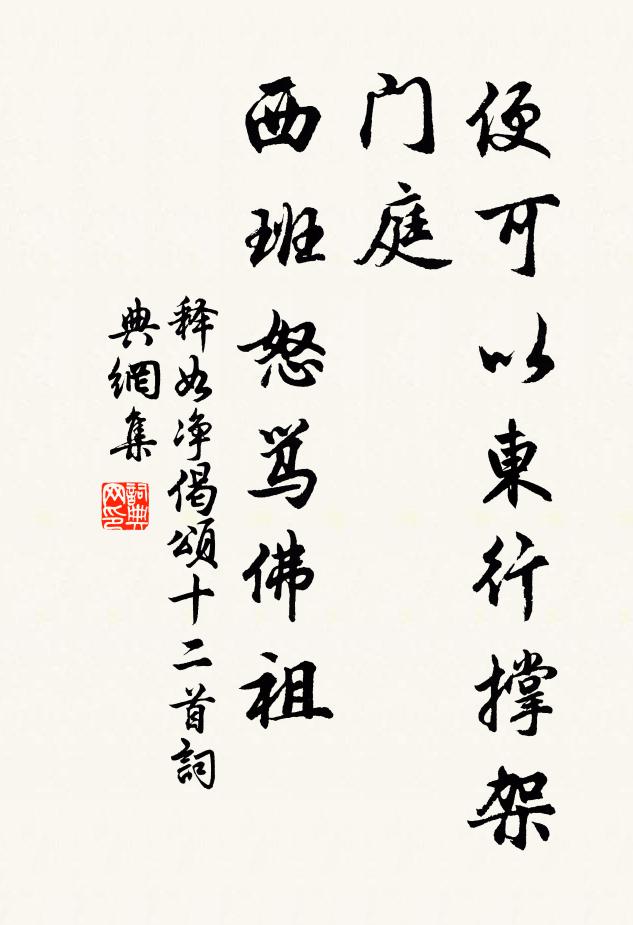 便可以東行撐架
門庭
西班怒骂佛祖
释如净偈頌十二首詞
典網集
詞典
网印